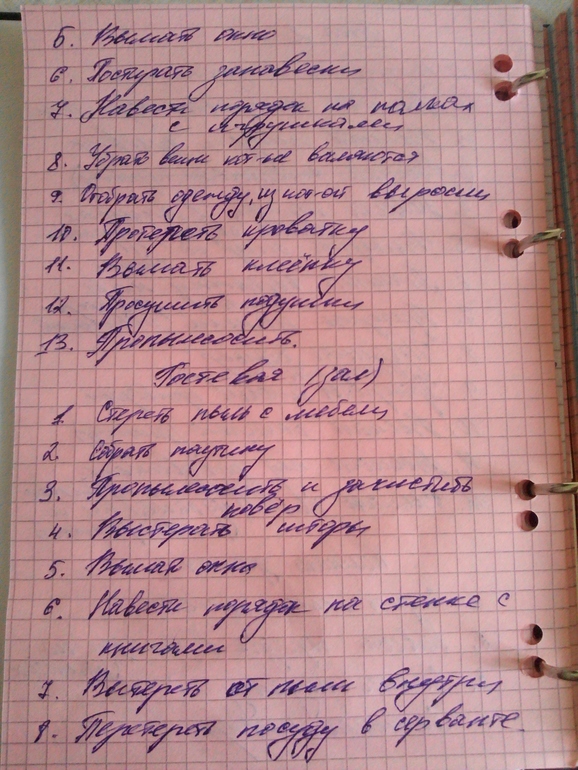 5. Вымыть окно
6. Постирать занавески
7. Навести порядок на полках
с игрушками
8. Убрать вещи кот-ые валяются
9. Отобрать одежду, из кот-ой выросли
10. Протереть кроватку
11. Вымыть клеёнку
12. Просушить подушки
13. Пропылесосить.
Гостевая (зал)
1. Стереть пыль с мебели
2. Собрать паутину
3. Пропылесосить и зачистить
ковёр
4. Выстерать шторы
5. Вымыть окна
6. Навести порядок на стенке с
книгами
7. Вытереть от пыли внутри
8. Перетереть посуду в серванте.